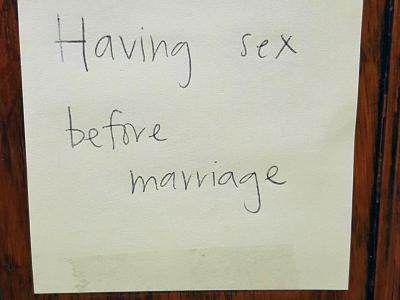 Having sex
before
marriage